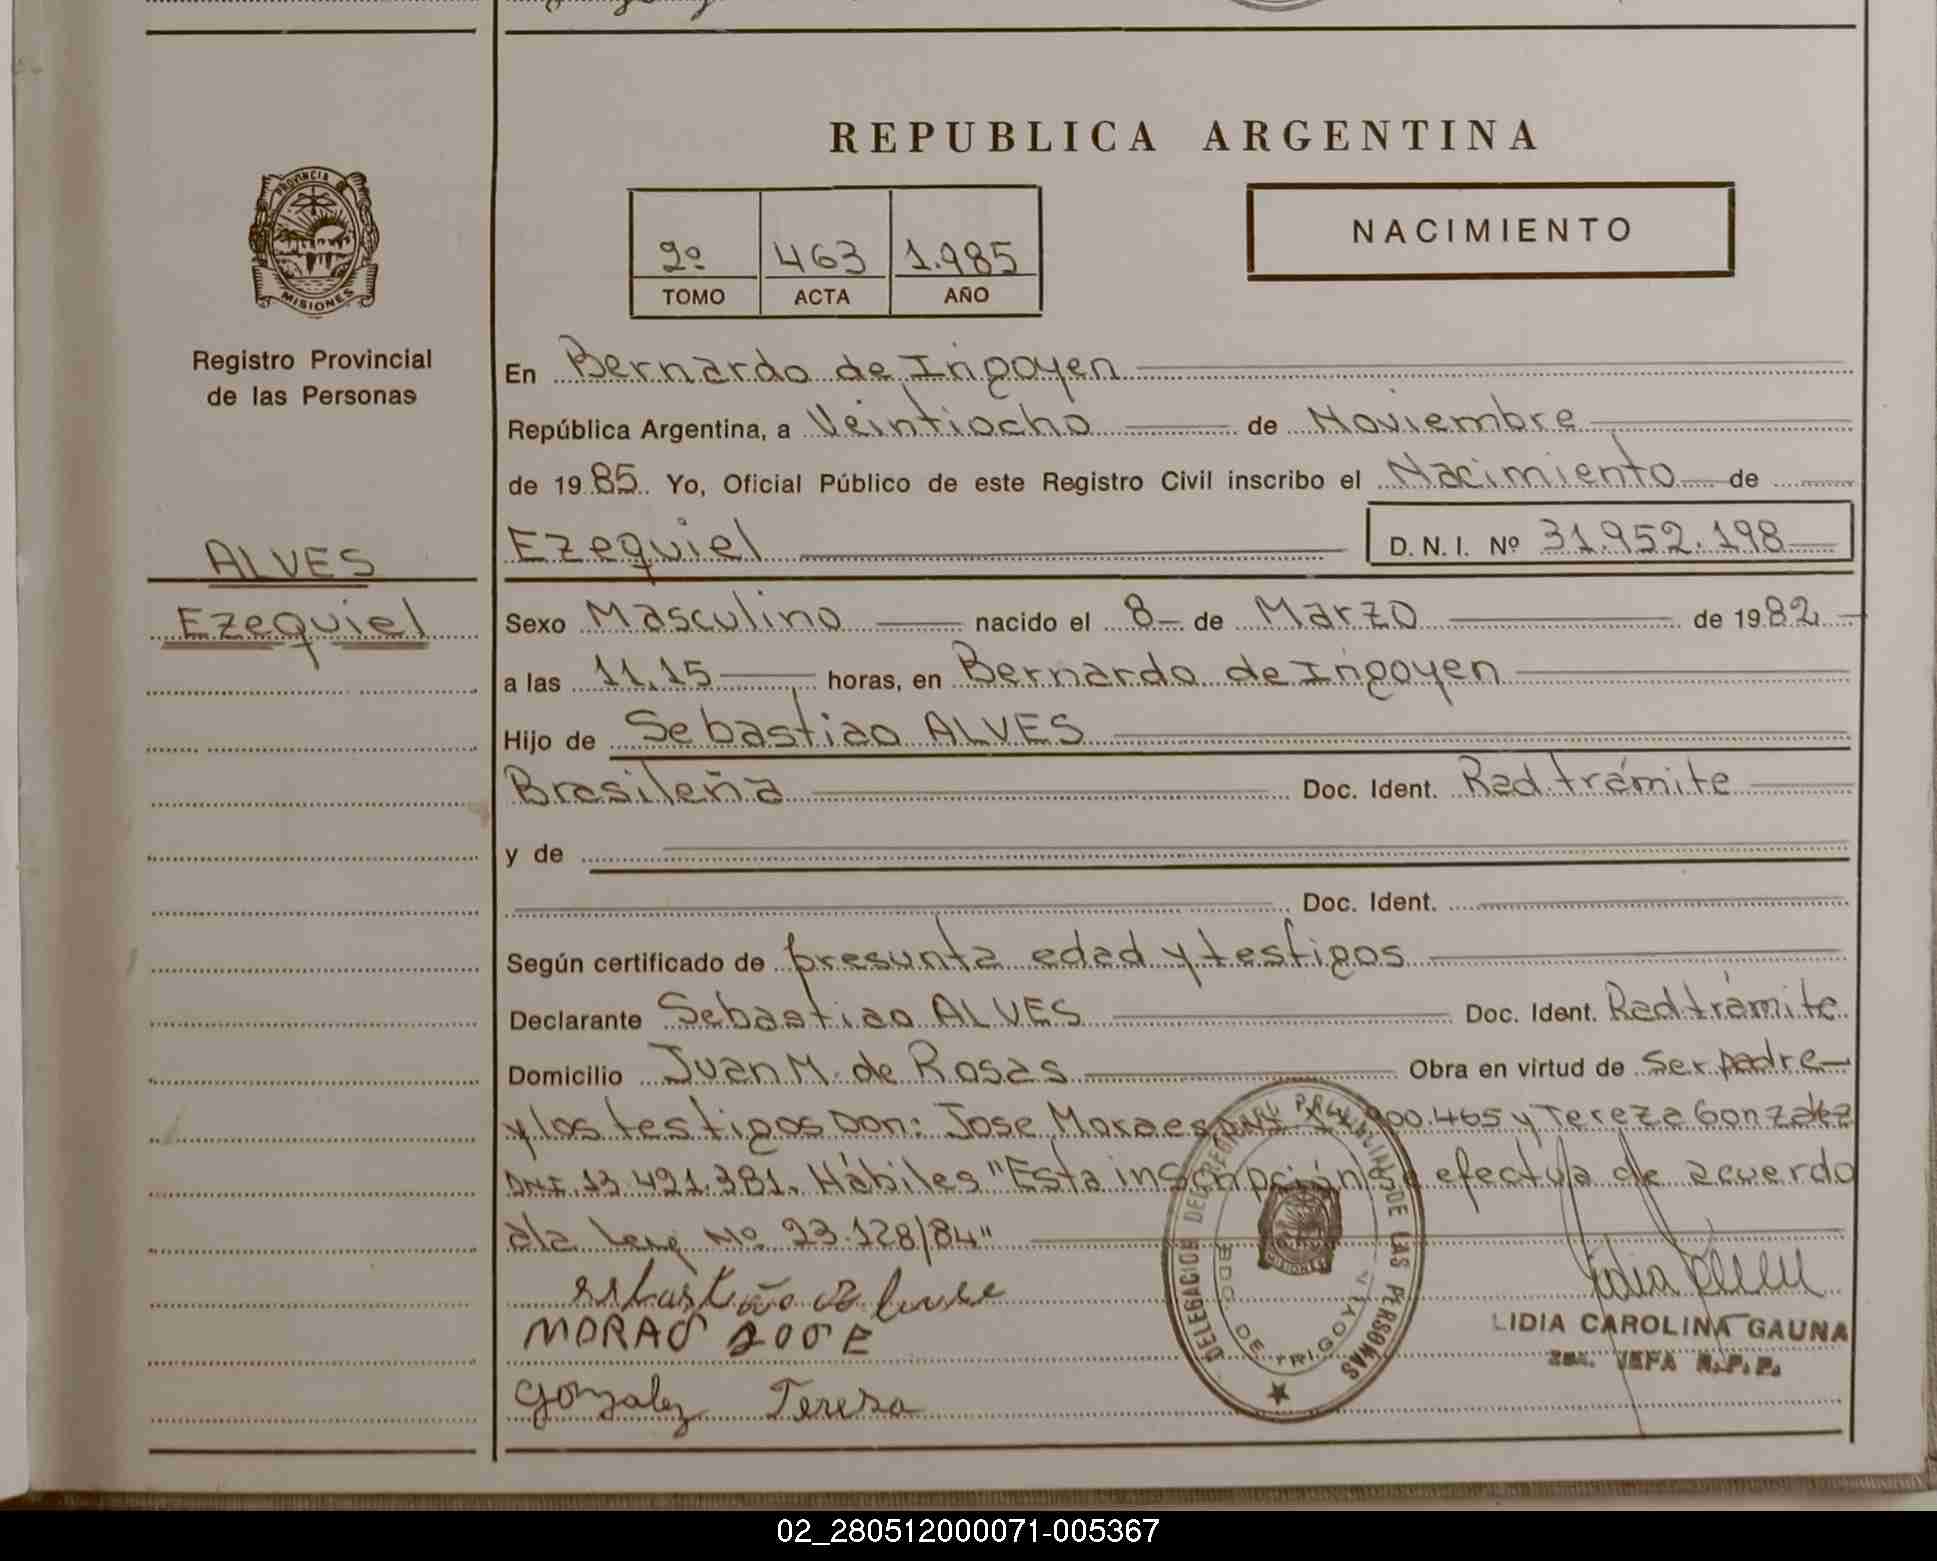 REPUBLICA ARGENTINA
PROVINCIA DE
MISIONES
Registro Provincial
de las Personas
ALVES
Ezequiel
2º 463 1.985
TOMO ACTA AÑO
NACIMIENTO
En Bernardo de Irigoyen
República Argentina, a Veintiocho de Noviembre
de 1985. Yo, Oficial Público de este Registro Civil inscribo el Nacimiento de
Ezequiel D. N. I. Nº 31.952.198
Sexo Masculino nacido el 8 de Marzo de 1982
a las 11,15 horas, en Bernardo de Irigoyen
Hijo de Sebastiao ALVES
Brasileña Doc. Ident. Rad.trámite
y de
Doc. Ident.
Según certificado de presunta edad y testigos
Declarante Sebastiao ALVES Doc. Ident. Rad.trámite
Domicilio Juan M. de Rosas Obra en virtud de ser padre
y los testigos Don: Jose Moraes 900.465 y Tereza Gonzalez
DNI 13.421.381. Hábiles "Esta inscripción se efectúa de acuerdo
a la Ley Nº 23.128/84"
MORAO JOSE
Gonzalez Teresa
DELEGACION DEL REGISTRO PROVINCIAL DE LAS PERSONAS
BDO. DE IRIGOYEN
MISIONES
LIDIA CAROLINA GAUNA
JEFA R.P.P.
02_280512000071-005367